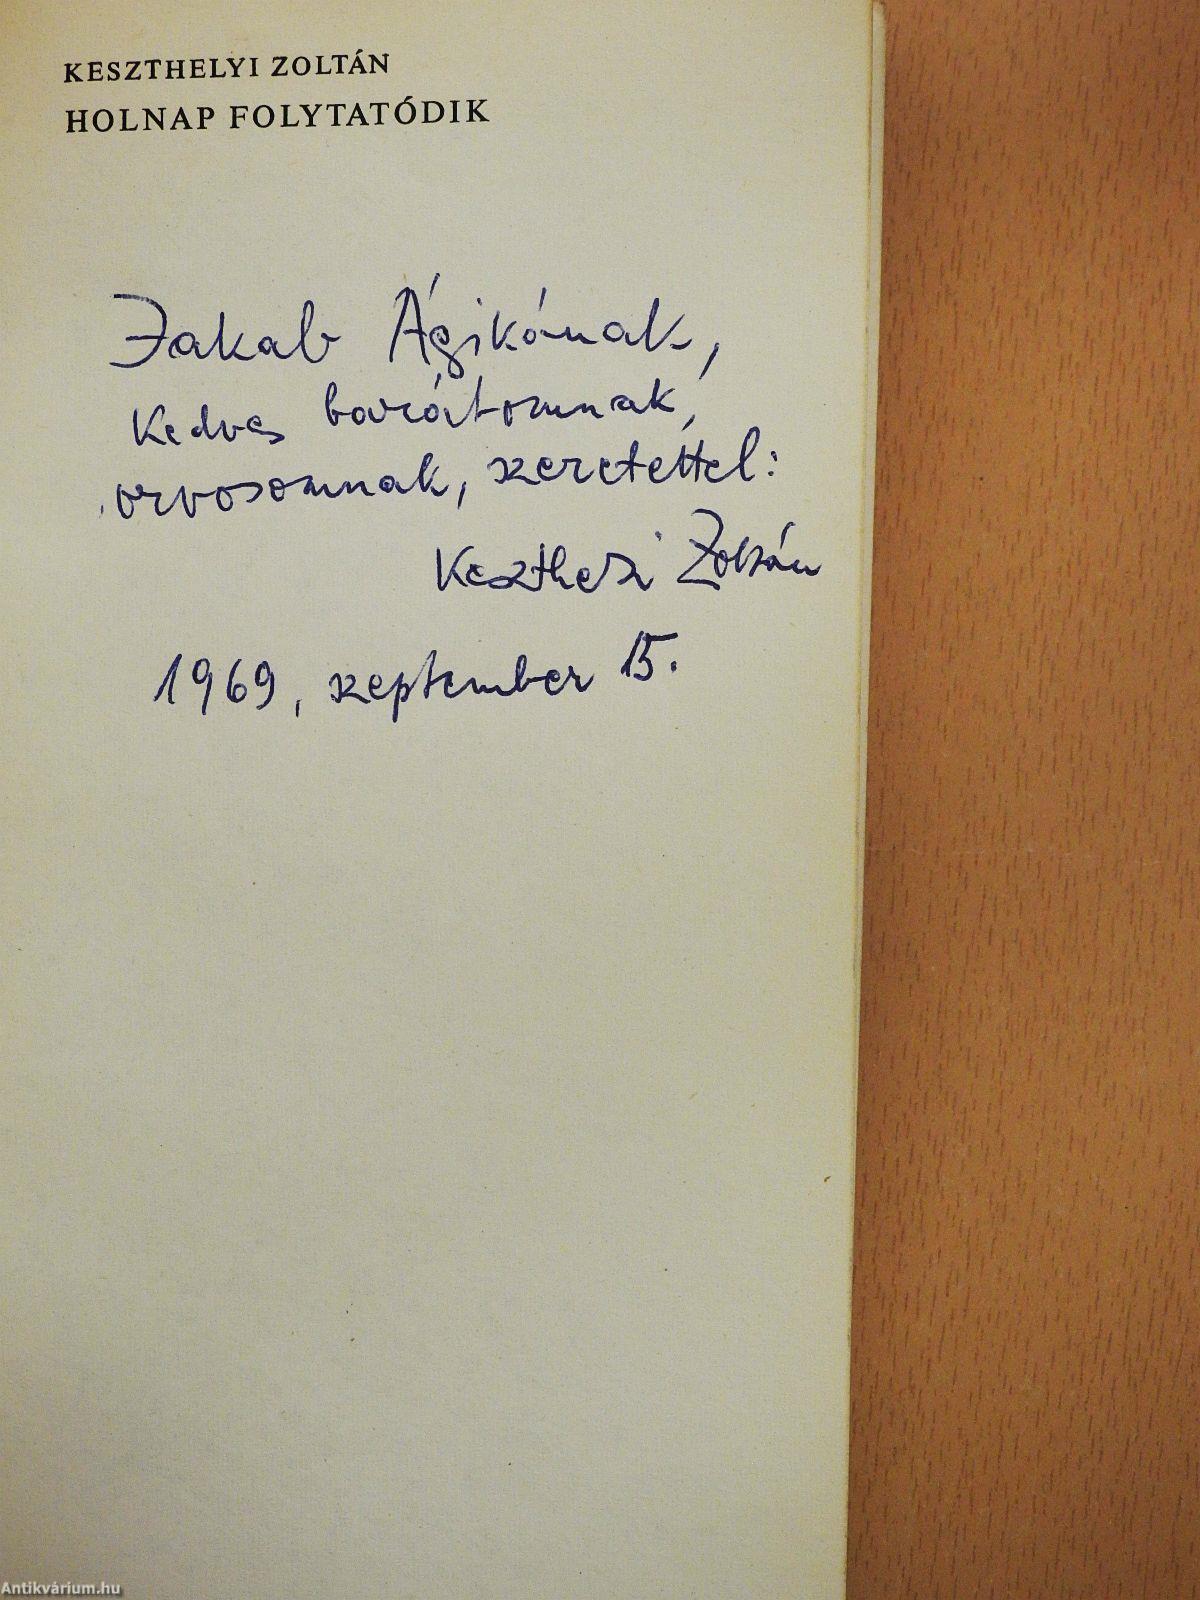 KESZTHELYI ZOLTÁN
HOLNAP FOLYTATÓDIK
Jakab Ágikónak,
kedves barátomnak,
orvosomnak, szeretettel:
Keszthelyi Zoltán
1969, szeptember 15.
Antikvárium.hu